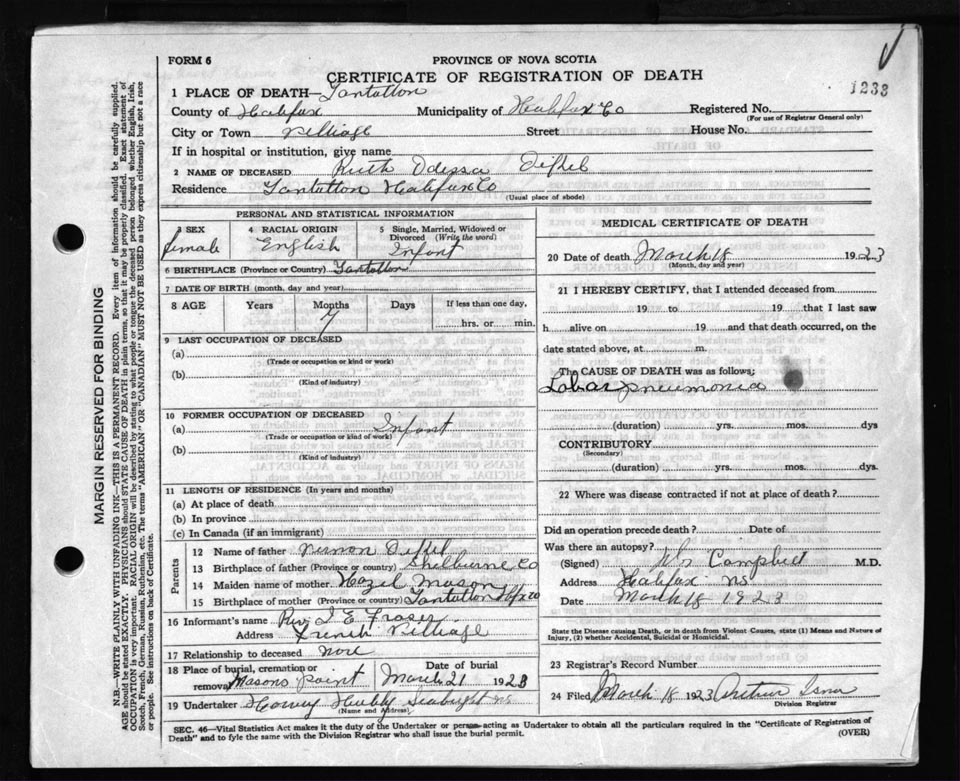 FORM 6
PROVINCE OF NOVA SCOTIA
CERTIFICATE OF REGISTRATION OF DEATH
1233
1 PLACE OF DEATH—Tantallon
County of Halifax Municipality of Halifax Co Registered No.
(For use of Registrar General only)
City or Town village Street House No.
If in hospital or institution, give name
2 NAME OF DECEASED Ruth Odessa
Residence Tantallon Halifax Co
(Usual place of abode)
PERSONAL AND STATISTICAL INFORMATION
3 SEX 4 RACIAL ORIGIN 5 Single, Married, Widowed or Divorced (Write the word)
female English Infant
6 BIRTHPLACE (Province or Country) Tantallon
7 DATE OF BIRTH (month, day and year)
8 AGE Years Months Days If less than one day,
7 hrs. or min.
9 LAST OCCUPATION OF DECEASED
(a)
(Trade or occupation or kind or work)
(b)
(Kind of industry)
10 FORMER OCCUPATION OF DECEASED
(a) Infant
(Trade or occupation or kind of work)
(b)
(Kind of industry)
11 LENGTH OF RESIDENCE (In years and months)
(a) At place of death
(b) In province
(c) In Canada (if an immigrant)
Parents
12 Name of father Vernon
13 Birthplace of father (Province or country) Shelburne Co
14 Maiden name of mother Hazel Mason
15 Birthplace of mother (Province or country) Tantallon Hfx Co
16 Informant's name Rev. I E Fraser
Address French Village
17 Relationship to deceased none
18 Place of burial, cremation or removal Masons point Date of burial March 21 1923
19 Undertaker Harvey Hubley Seabright NS
(Name and Address)
MEDICAL CERTIFICATE OF DEATH
20 Date of death March 18 1923
(Month, day and year)
21 I HEREBY CERTIFY, that I attended deceased from
19 to 19 that I last saw
h alive on 19 and that death occurred, on the
date stated above, at m.
The CAUSE OF DEATH was as follows:
Lobar pneumonia
(duration) yrs. mos. dys
CONTRIBUTORY
(Secondary)
(duration) yrs. mos. dys.
22 Where was disease contracted if not at place of death?
Did an operation precede death? Date of
Was there an autopsy?
(Signed) Campbell M.D.
Address Halifax NS
Date March 18 1923
State the Disease causing Death, or in death from Violent Causes, state (1) Means and Nature of
Injury, (2) whether Accidental, Suicidal or Homicidal.
23 Registrar's Record Number
24 Filed March 18 1923 Arthur
Division Registrar
SEC. 46—Vital Statistics Act makes it the duty of the Undertaker or person acting as Undertaker to obtain all the particulars required in the "Certificate of Registration of
Death" and to fyle the same with the Division Registrar who shall issue the burial permit. (OVER)
MARGIN RESERVED FOR BINDING
N.B.—WRITE PLAINLY WITH UNFADING INK—THIS IS A PERMANENT RECORD. Every item of information should be carefully supplied.
AGE should be stated EXACTLY. PHYSICIANS should STATE CAUSE OF DEATH in plain terms, so that it may be properly classified. Exact statement of
OCCUPATION is very important. RACIAL ORIGIN will be described by stating to what people or tongue the deceased person belonged whether English, Irish,
Scotch, French, German, Russian, Ruthenian, etc. The terms "AMERICAN" or "CANADIAN" MUST NOT BE USED as they express citizenship but not a race
or people. See instructions on back of Certificate.